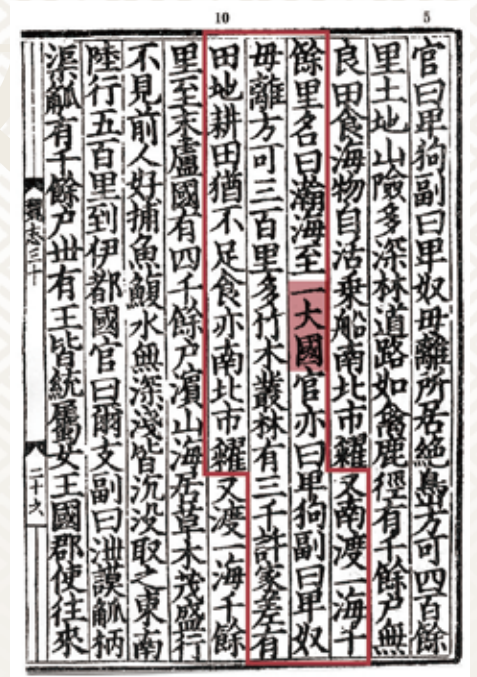 5
10
官曰卑狗副曰卑奴毋離所居絶島方可四百餘
里土地山險多深林道路如禽鹿徑有千餘戸無
良田食海物自活乗船南北市糴又南渡一海千
餘里名曰瀚海至一大國官亦曰卑狗副曰卑奴
毋離方可三百里多竹木叢林有三千許家差有
田地耕田猶不足食亦南北市糴又渡一海千餘
里至末盧國有四千餘戸濱山海居草木茂盛行
不見前人好捕魚鰒水無深淺皆沉没取之東南
陸行五百里到伊都國官曰爾支副曰泄謨觚柄
渠觚有千餘戸丗有王皆統屬女王國郡使往來
魏志三十
二十六